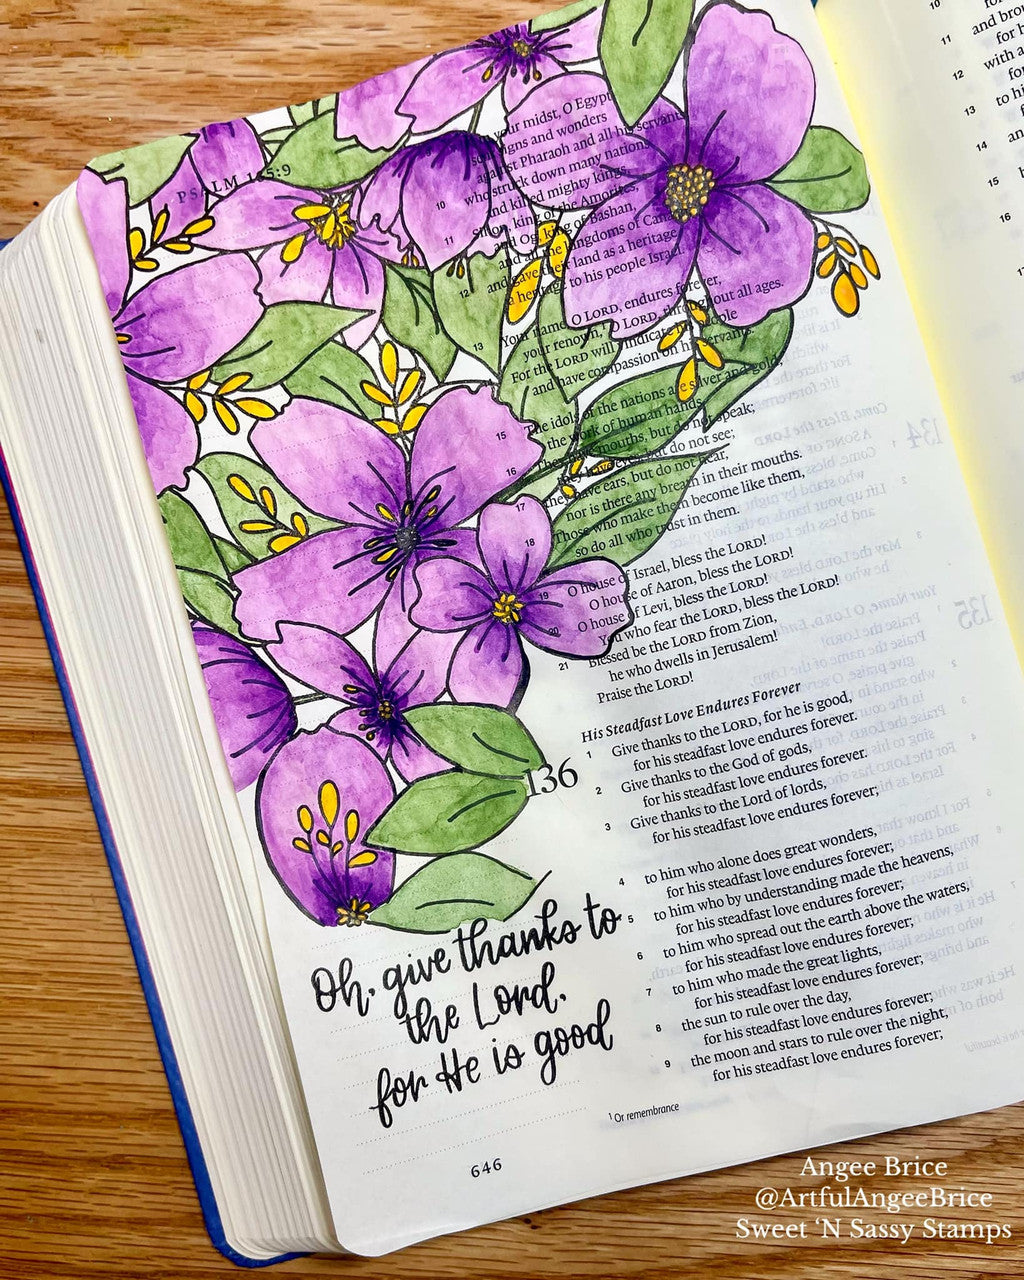 PSALM 135:9
in your midst, O Egypt,
signs and wonders
against Pharaoh and all his servants
10 who struck down many nations
and killed mighty kings,
11 Sihon, king of the Amorites,
and Og, king of Bashan,
and all the kingdoms of Canaan,
12 and gave their land as a heritage,
a heritage to his people Israel.
13 Your name, O LORD, endures forever,
your renown, O LORD, throughout all ages.
For the LORD will vindicate his people
and have compassion on his servants.
15 The idols of the nations are silver and gold,
the work of human hands.
16 They have mouths, but do not speak;
they have eyes, but do not see;
17 they have ears, but do not hear,
nor is there any breath in their mouths.
18 Those who make them become like them,
so do all who trust in them.
19 O house of Israel, bless the LORD!
O house of Aaron, bless the LORD!
20 O house of Levi, bless the LORD!
You who fear the LORD, bless the LORD!
21 Blessed be the LORD from Zion,
he who dwells in Jerusalem!
Praise the LORD!
His Steadfast Love Endures Forever
136 1 Give thanks to the LORD, for he is good,
for his steadfast love endures forever.
2 Give thanks to the God of gods,
for his steadfast love endures forever.
3 Give thanks to the Lord of lords,
for his steadfast love endures forever;
4 to him who alone does great wonders,
for his steadfast love endures forever;
5 to him who by understanding made the heavens,
for his steadfast love endures forever;
6 to him who spread out the earth above the waters,
for his steadfast love endures forever;
7 to him who made the great lights,
for his steadfast love endures forever;
8 the sun to rule over the day,
for his steadfast love endures forever;
9 the moon and stars to rule over the night,
for his steadfast love endures forever;
1 Or remembrance
Oh, give thanks to
the Lord,
for He is good
646
10
11 and bro
for h
12 with a
for
13 to hi
14 an
15
16
Angee Brice
@ArtfulAngeeBrice
Sweet 'N Sassy Stamps